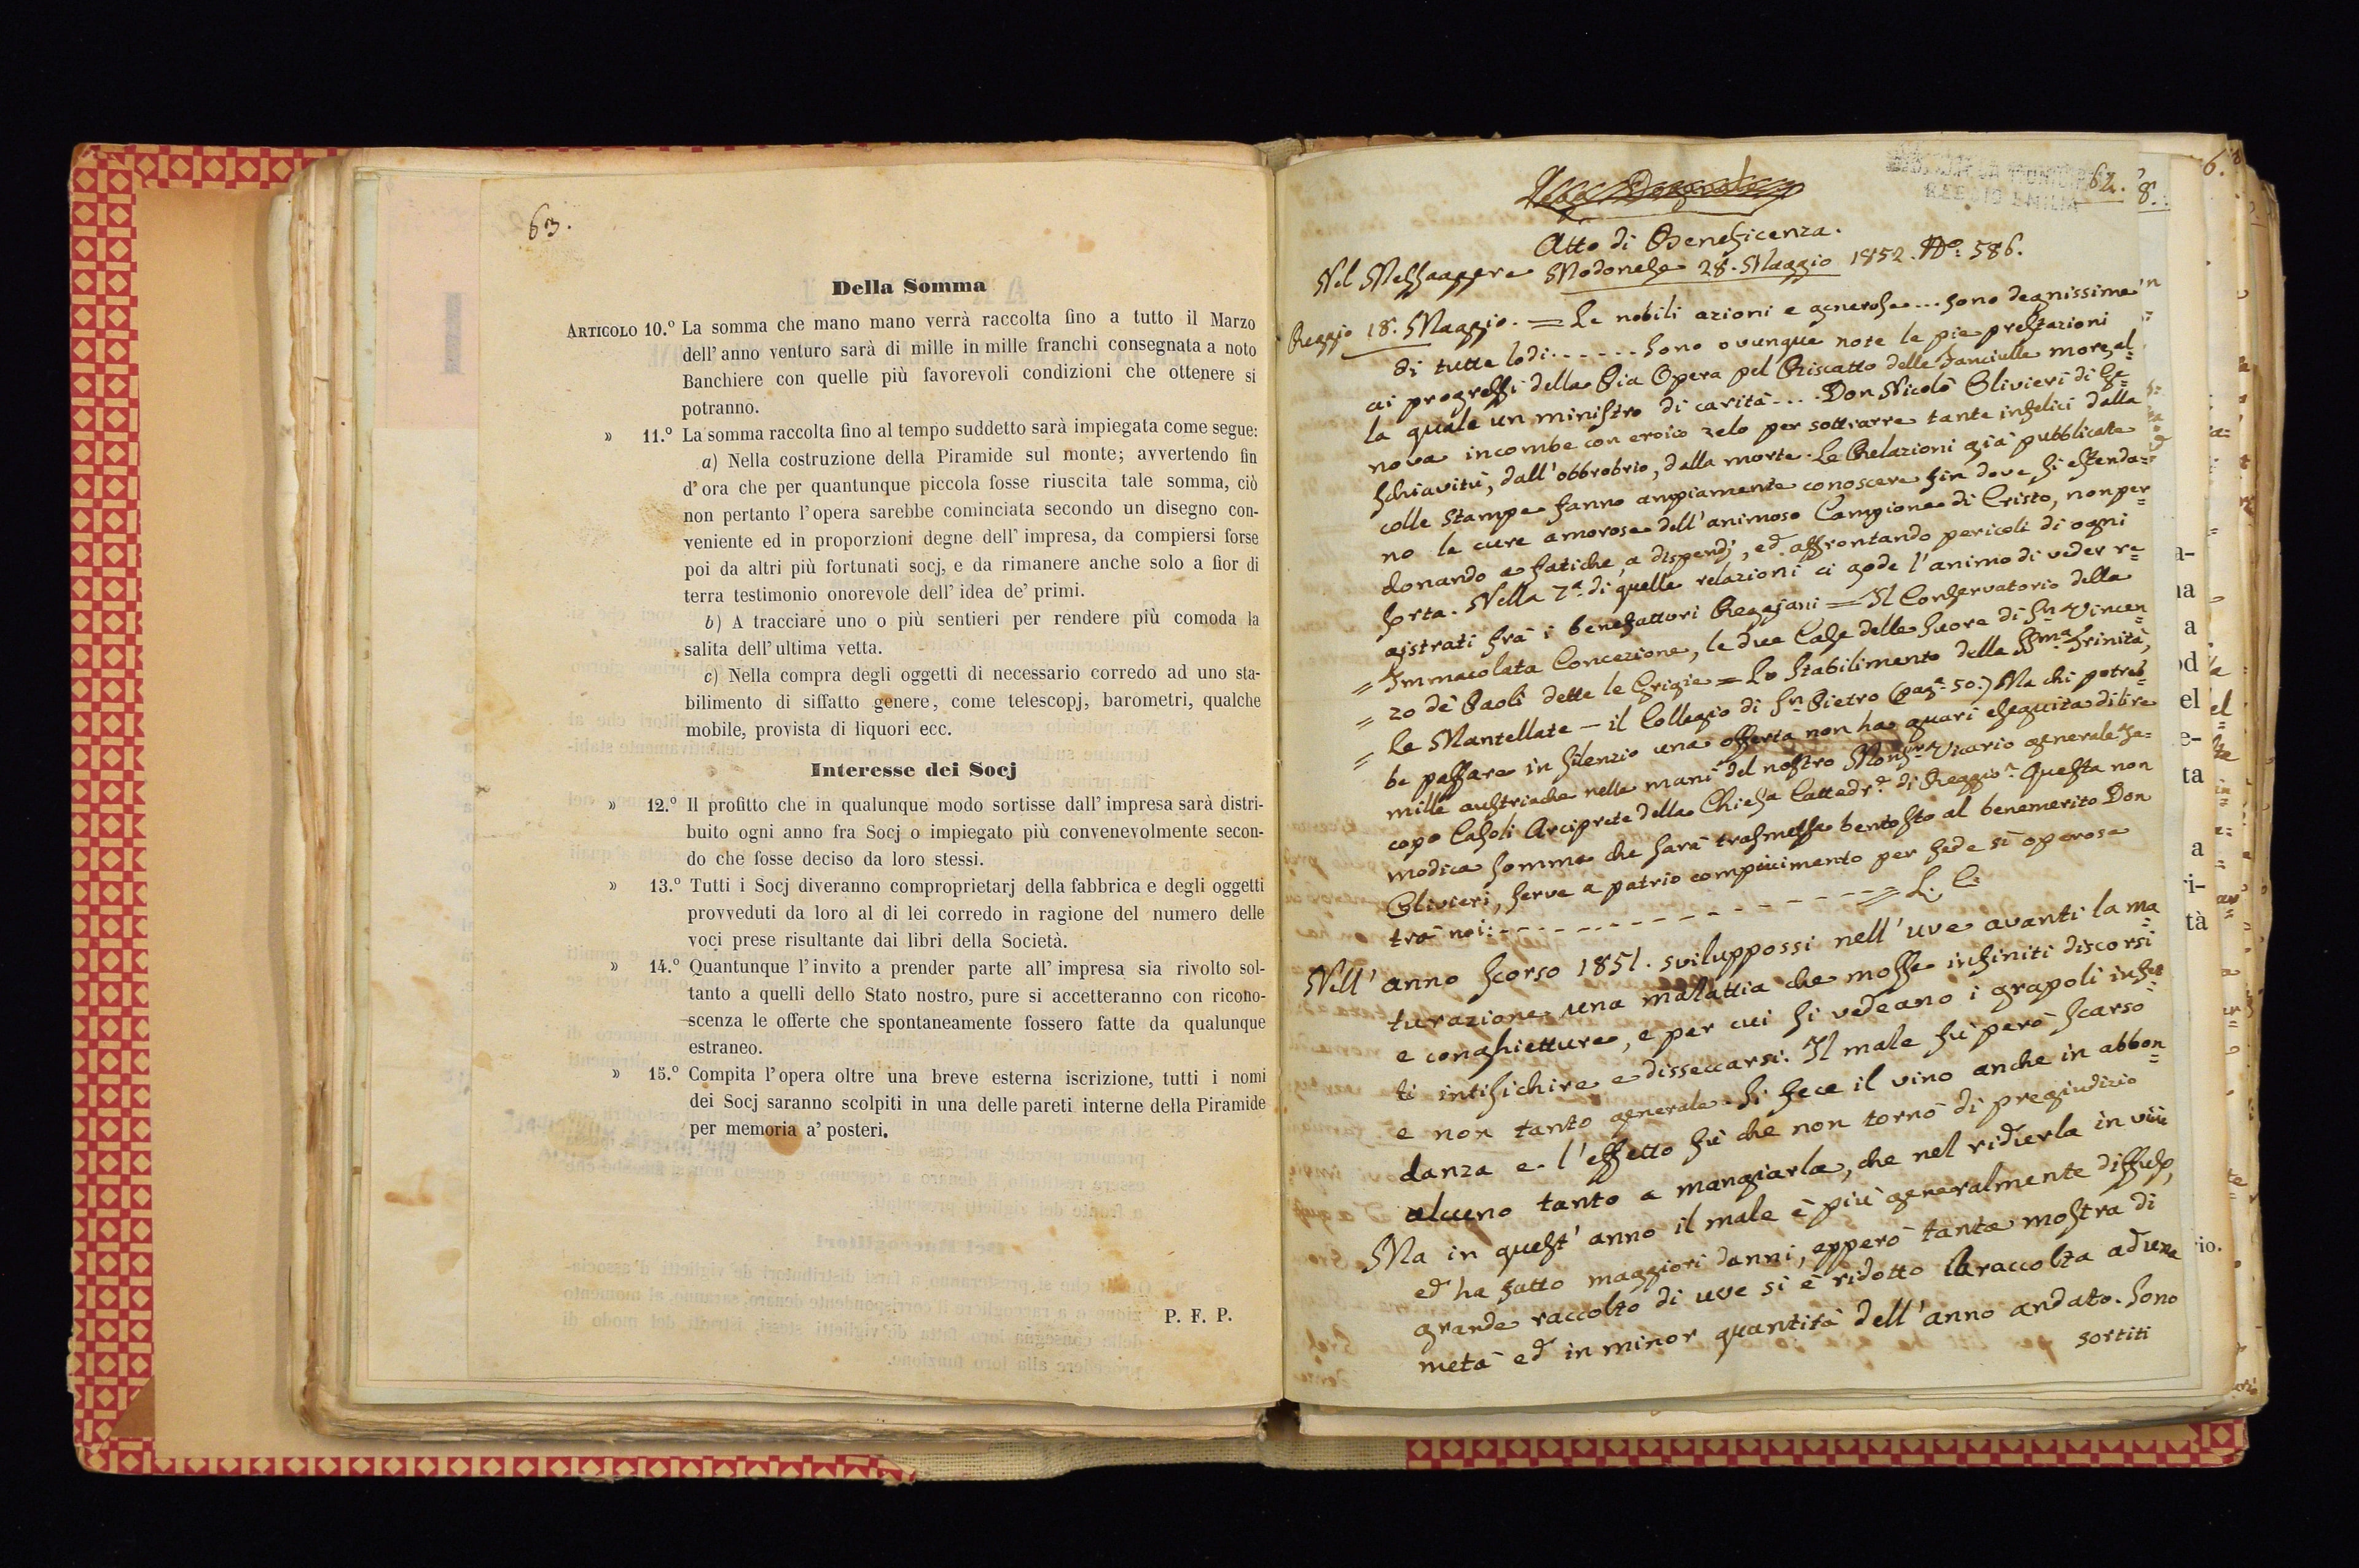 63.
Della Somma
ARTICOLO 10.º La somma che mano mano verrà raccolta fino a tutto il Marzo
dell' anno venturo sarà di mille in mille franchi consegnata a noto
Banchiere con quelle più favorevoli condizioni che ottenere si
potranno.
» 11.º La somma raccolta fino al tempo suddetto sarà impiegata come segue:
a) Nella costruzione della Piramide sul monte; avvertendo fin
d' ora che per quantunque piccola fosse riuscita tale somma, ciò
non pertanto l' opera sarebbe cominciata secondo un disegno con-
veniente ed in proporzioni degne dell' impresa, da compiersi forse
poi da altri più fortunati socj, e da rimanere anche solo a fior di
terra testimonio onorevole dell' idea de' primi.
b) A tracciare uno o più sentieri per rendere più comoda la
salita dell' ultima vetta.
c) Nella compra degli oggetti di necessario corredo ad uno sta-
bilimento di siffatto genere, come telescopj, barometri, qualche
mobile, provista di liquori ecc.
Interesse dei Socj
» 12.º Il profitto che in qualunque modo sortisse dall' impresa sarà distri-
buito ogni anno fra Socj o impiegato più convenevolmente secon-
do che fosse deciso da loro stessi.
» 13.º Tutti i Socj diveranno comproprietarj della fabbrica e degli oggetti
provveduti da loro al di lei corredo in ragione del numero delle
voci prese risultante dai libri della Società.
» 14.º Quantunque l' invito a prender parte all' impresa sia rivolto sol-
tanto a quelli dello Stato nostro, pure si accetteranno con ricono-
scenza le offerte che spontaneamente fossero fatte da qualunque
estraneo.
» 15.º Compita l' opera oltre una breve esterna iscrizione, tutti i nomi
dei Socj saranno scolpiti in una delle pareti interne della Piramide
per memoria a' posteri.
P. F. P.
64.
REGGIO EMILIA
Atto di Beneficenza.
Nel Messaggere Modonese 28. Maggio 1852. Nº. 586.
Reggio 18. Maggio. = Le nobili azioni e generose ... sono degnissime
di tutte lodi ...... sono ovunque note le pie prestazioni
ai progressi della Pia Opera pel Riscatto delle Fanciulle more, al=
la quale un ministro di carità .... Don Nicolò Olivieri di Ge=
nova incombe con eroico zelo per sottrarre tante infelici dalla
schiavitù, dall' obbrobrio, dalla morte. Le Relazioni già pubblicate
colle Stampe fanno ampiamente conoscere fin dove si estenda=
no le cure amorose dell' animoso Campione di Cristo, non per=
donando a fatiche, a dispendj, ed affrontando pericoli di ogni
sorta. Nella 7ª di quelle relazioni ci gode l' animo di veder re=
gistrati frà i benefattori Reggiani = Il Conservatorio della
= Immacolata Concezione, le due Case delle Suore di Sn Vincen=
= zo dè Paoli dette le Grigie = Lo Stabilimento della SSma Trinità,
= le Mantellate — il Collegio di Sn Pietro (pag. 50.) Ma chi potreb=
be passare in silenzio una offerta non ha guari eseguita di lire
mille austriache nelle mani del nostro Monsre Vicario generale Ja=
copo Casoli Arciprete della Chiesa Cattedr. di Reggio. Questa non
modica somma che sarà trasmessa bentosto al benemerito Don
Olivieri, serve a patrio compiacimento per fede sì operosa
trà noi: - - - - - - - - - - - - = L. C.
Nell' anno scorso 1851. sviluppossi nell' uve avanti la ma=
turazione una malattia che mosse infiniti discorsi
e conghietture, e per cui si vedeano i grapoli infet=
ti intisichire e disseccarsi. Il male fù però scarso
e non tanto generale. Si fece il vino anche in abbon=
danza e l' effetto fù che non tornò di pregiudizio
alcuno tanto a mangiarla, che nel ridurla in vino
Ma in quest' anno il male è più generalmente diffuso,
ed ha fatto maggiori danni, epperò tanta mostra di
grande raccolto di uve si è ridotto la raccolta ad una
metà ed in minor quantità dell' anno andato. Sono
sortiti